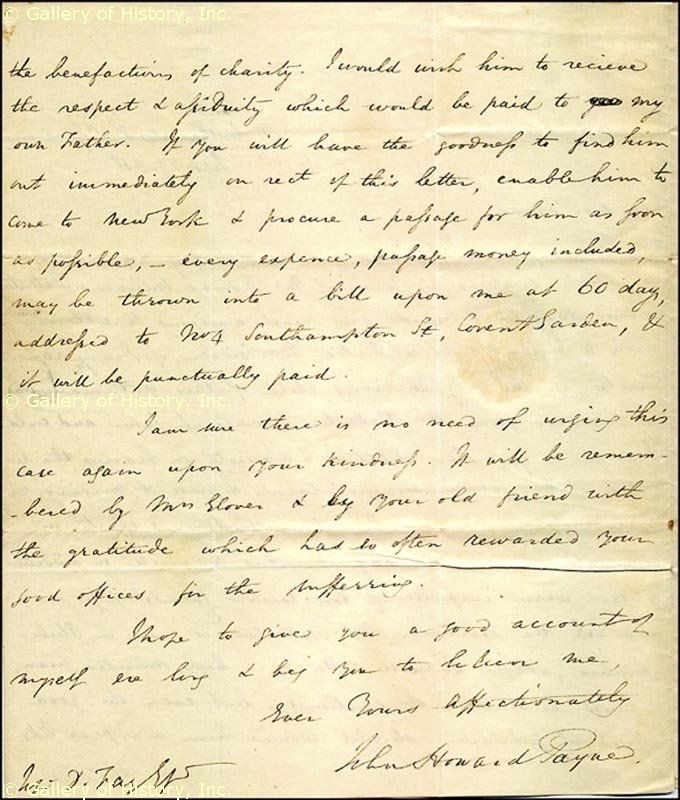 © Gallery of History, Inc.
the benefactions of charity. I would wish him to recieve
the respect & assiduity which would be paid to my
own Father. If you will have the goodness to find him
out immediately on rect of this letter, enable him to
come to New York & procure a passage for him as soon
as possible, – every expence, passage money included,
may be thrown into a bill upon me at 60 days,
addressed to No 4 Southampton St, Covent Garden, &
it will be punctually paid.
© Gallery of History, Inc.
I am sure there is no need of urging this
case again upon your kindness. It will be remem-
-bered by Mrs Glover & by your old friend with
the gratitude which has so often rewarded your
good offices for the suffering.
I hope to give you a good account of
myself ere long & beg you to believe me,
Ever Yours affectionately
John Howard Payne.
D. Fay Esqr
© Gallery of History, Inc.